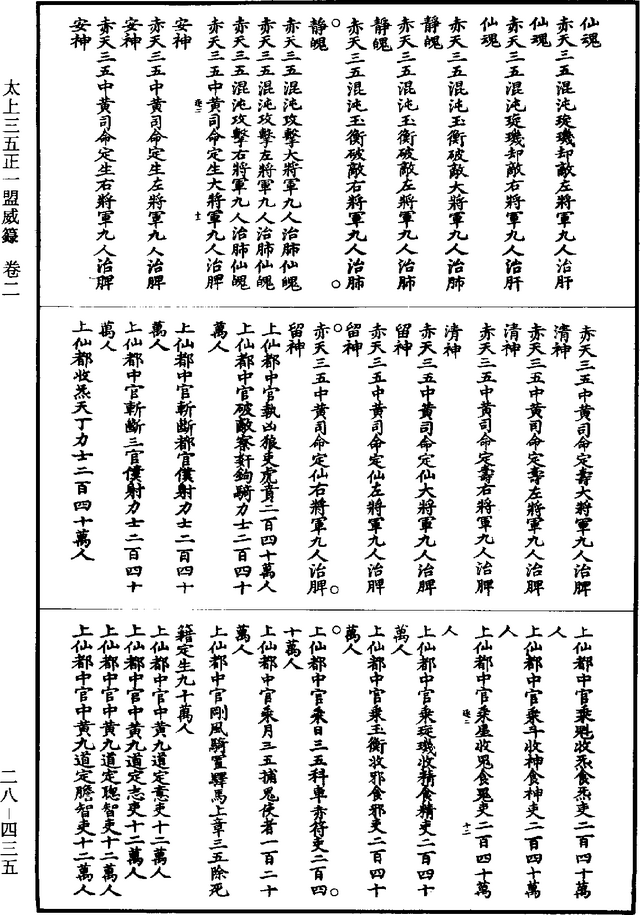 太上三五正一盟威籙　卷二
仙魂
赤天三五混沌璇璣却敵左將軍九人治肝
仙魂
赤天三五混沌璇璣却敵右將軍九人治肝
仙魂
赤天三五混沌玉衡破敵大將軍九人治肺
靜魄
赤天三五混沌玉衡破敵左將軍九人治肺
靜魄
赤天三五混沌玉衡破敵右將軍九人治肺
靜魄
赤天三五混沌攻擊大將軍九人治肺仙魄
赤天三五混沌攻擊左將軍九人治肺仙魄
赤天三五混沌攻擊右將軍九人治肺仙魄
赤天三五中黃司命定生大將軍九人治脾
安神
赤天三五中黃司命定生左將軍九人治脾
安神
赤天三五中黃司命定生右將軍九人治脾
安神
赤天三五中黃司命定壽大將軍九人治脾
清神
赤天三五中黃司命定壽左將軍九人治脾
清神
赤天三五中黃司命定壽右將軍九人治脾
清神
赤天三五中黃司命定仙大將軍九人治脾
留神
赤天三五中黃司命定仙左將軍九人治脾
留神
赤天三五中黃司命定仙右將軍九人治脾
留神
上仙都中官執凶狼吏虎賁二百四十萬人
上仙都中官破敵察奸鉤騎力士二百四十
萬人
上仙都中官斬斷都官僕射力士二百四十
萬人
上仙都中官斬斷三官僕射力士二百四十
萬人
上仙都收炁天丁力士二百四十萬人
上仙都中官乘魁收炁食炁吏二百四十萬
人
上仙都中官乘斗收神食神吏二百四十萬
人
上仙都中官乘星收鬼食鬼吏二百四十萬
人
上仙都中官乘璇璣收精食精吏二百四十
萬人
上仙都中官乘玉衡收邪食邪吏二百四十
萬人
上仙都中官乘日三五科車赤符吏二百四
十萬人
上仙都中官乘月三五捕鬼使者一百二十
萬人
上仙都中官剛風騎置驛馬上章三五除死
籍定生九十萬人
上仙都中官中黃九道定意吏十二萬人
上仙都中官中黃九道定志吏十二萬人
上仙都中官中黃九道定聰智吏十二萬人
上仙都中官中黃九道定膽智吏十二萬人
二八—四三五